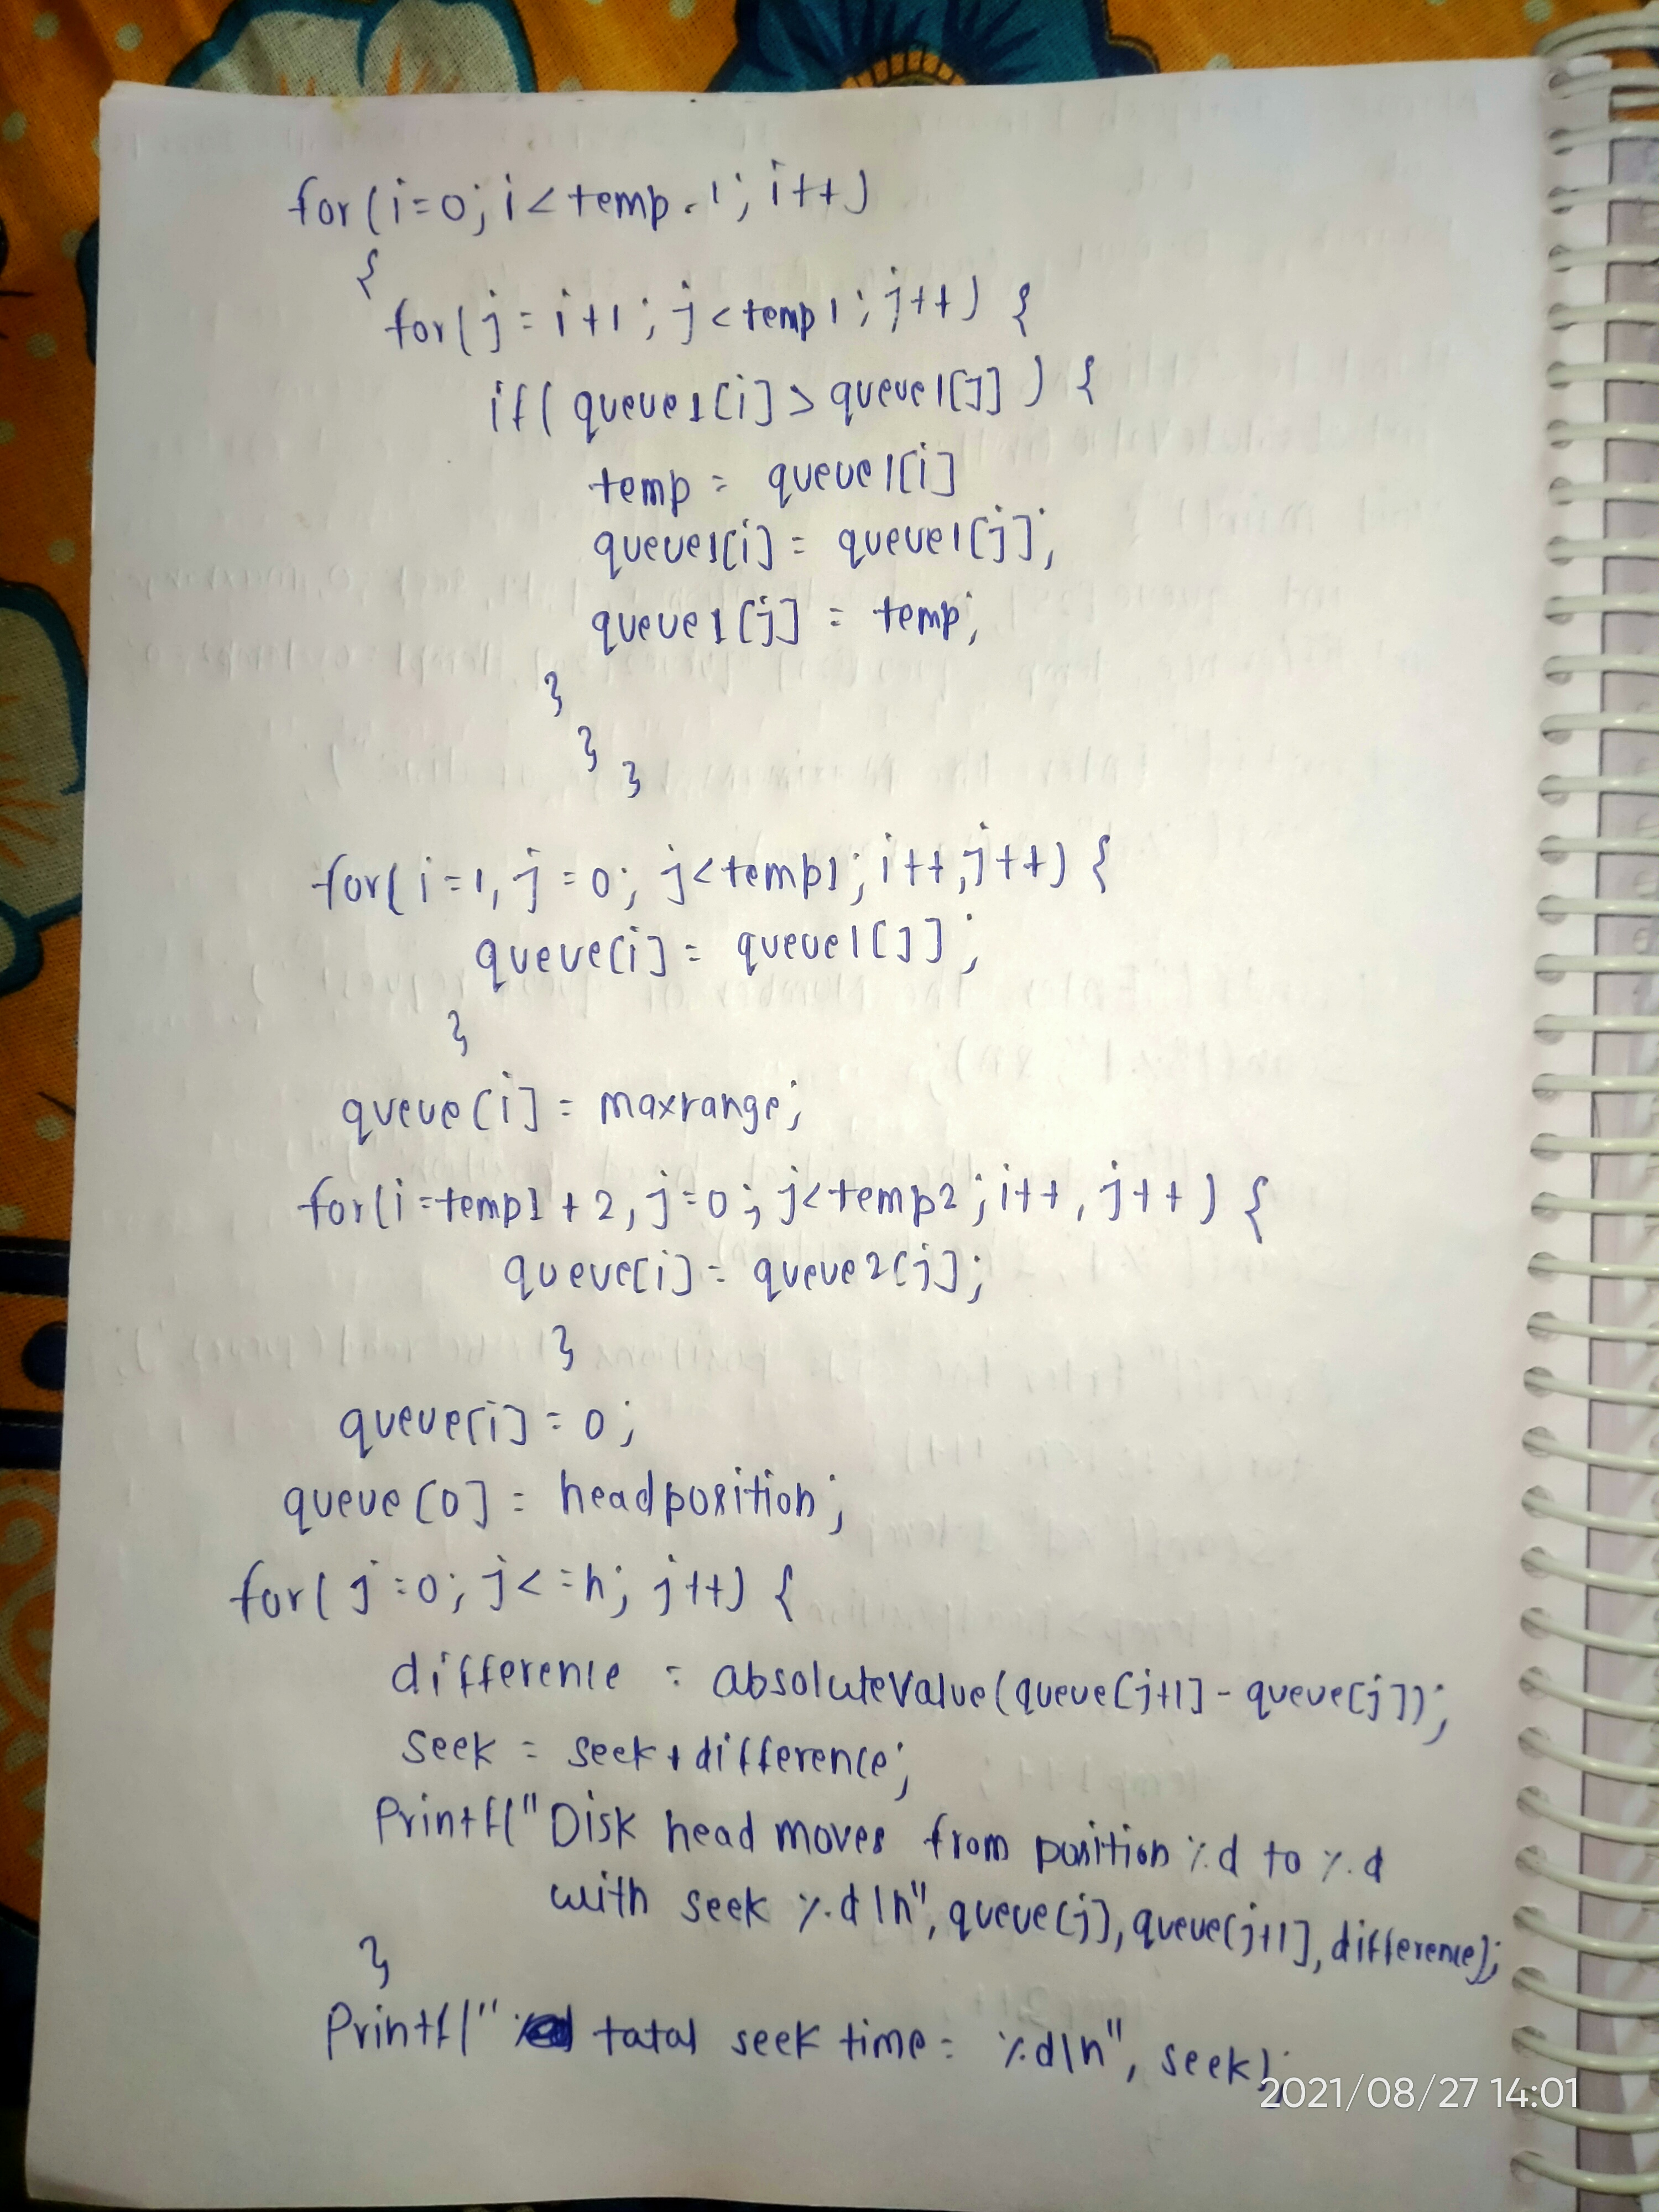 for(i=0; i<temp-1; i++)
{
for(j=i+1; j<temp1; j++) {
if( queue1[i] > queue1[j] ) {
temp = queue1[i]
queue1[i] = queue1[j];
queue1[j] = temp;
}
}
}
for( i=1, j=0; j<temp1; i++,j++) {
queue[i] = queue1[j];
}
queue[i] = maxrange;
for(i=temp1+2, j=0; j<temp2; i++, j++) {
queue[i] = queue2[j];
}
queue[i] = 0;
queue[0] = headposition;
for( j=0; j<=n; j++) {
difference = absoluteValue(queue[j+1] - queue[j]);
seek = seek + difference;
Printf("Disk head moves from position %d to %d
with seek %d\n", queue[j], queue[j+1], difference);
}
Printf(" tatal seek time = %d\n", seek);
2021/08/27 14:01